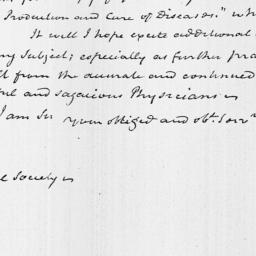 Production and Cure of Diseases." wh
It will I hope excite additional
my Subject; especially as further pra
from the accurate and continued
and sagacious Physicians
I am Sir your obliged and obt. Serv
Society